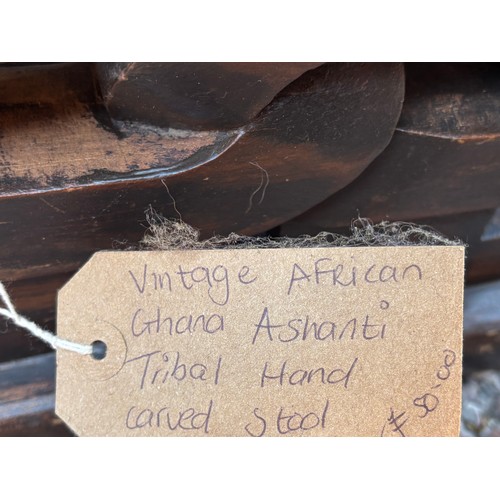 Vintage AFRICAN
Ghana Ashanti
Tribal Hand
carved Stool
£50.00